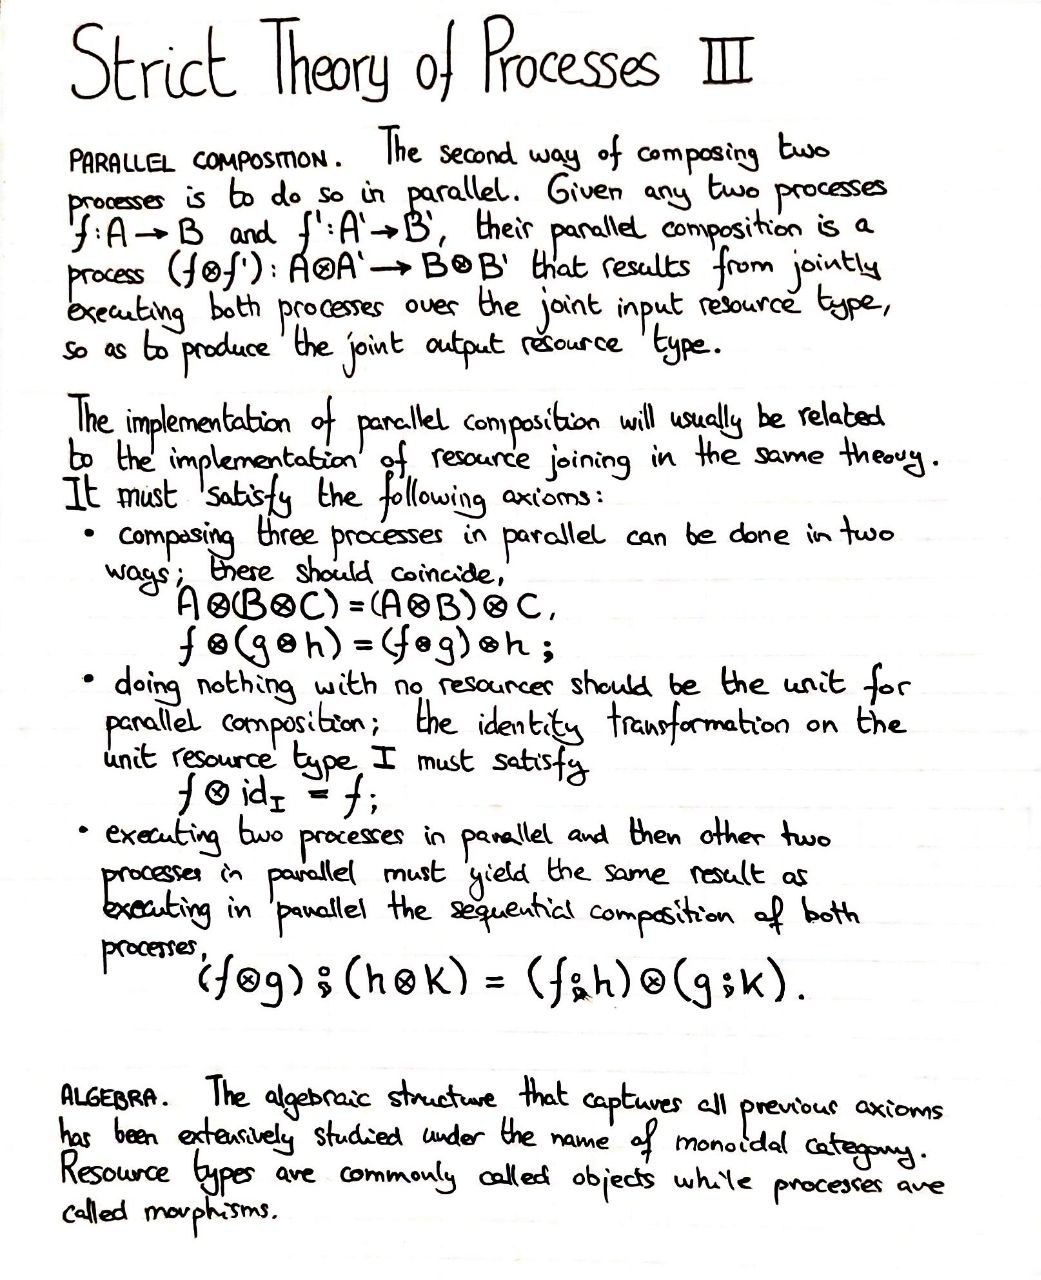 Strict Theory of Processes III
PARALLEL COMPOSITION. The second way of composing two
processes is to do so in parallel. Given any two processes
f:A→B and f':A'→B', their parallel composition is a
process (f⊗f'): A⊗A'→B⊗B' that results from jointly
executing both processes over the joint input resource type,
so as to produce the joint output resource type.
The implementation of parallel composition will usually be related
to the implementation of resource joining in the same theory.
It must satisfy the following axioms:
• composing three processes in parallel can be done in two
ways; these should coincide,
A⊗(B⊗C)=(A⊗B)⊗C,
f⊗(g⊗h)=(f⊗g)⊗h;
• doing nothing with no resources should be the unit for
parallel composition; the identity transformation on the
unit resource type I must satisfy
f⊗id_I = f;
• executing two processes in parallel and then other two
processes in parallel must yield the same result as
executing in parallel the sequential composition of both
processes,
(f⊗g)⨾(h⊗k) = (f⨾h)⊗(g⨾k).
ALGEBRA. The algebraic structure that captures all previous axioms
has been extensively studied under the name of monoidal category.
Resource types are commonly called objects while processes are
called morphisms.